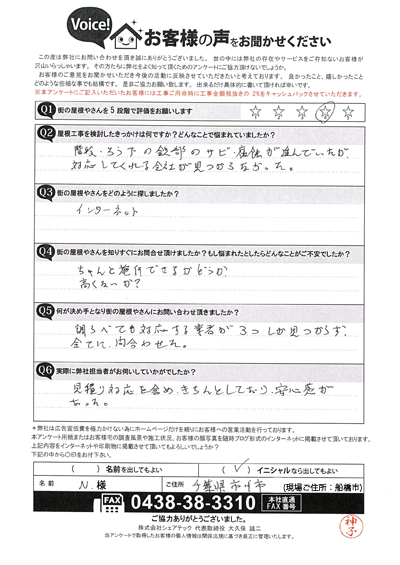 Voice!
お客様の声をお聞かせください
この度は弊社にお問い合わせを頂き誠にありがとうございました。世の中には弊社の存在やサービスをご存知ないお客様が
沢山いらっしゃいます。その方たちに弊社をよく知って頂くためのアンケートにご協力頂けないでしょうか。
お客様のご意見をお聞かせいただき今後の活動に反映させていただきたいと考えております。良かったこと、嬉しかったこと
どのような些細な事でも結構です。是非ご協力お願い致します。出来るだけ具体的に書いて頂ければ幸いです。
※本アンケートにご記入いただいたお客様には工事ご用命時に工事金額税抜きの2%をキャッシュバックさせていただきます。
Q1 街の屋根やさんを5段階で評価をお願いします ☆ ☆ ☆ ☆ ☆
Q2 屋根工事を検討したきっかけは何ですか?どんなことで悩まれていましたか?
階段・ろう下の鉄部のサビ・腐蝕が進んでいたが、
対応してくれる会社が見つからなかった。
Q3 街の屋根やさんをどのように探しましたか?
インターネット
Q4 街の屋根やさんを知りすぐにお問合せ頂けましたか?もし悩まれたとしたらどんなことがご不安でしたか?
ちゃんと施行できるかどうか
高くないか?
Q5 何が決め手となり街の屋根やさんにお問い合わせ頂きましたか?
調らべても対応する業者が3つしか見つからず、
全てに、問合わせた。
Q6 実際に弊社担当者がお伺いしていかがでしたか?
見積り対応を含め、きちんとしており、安心感が
あった。
*弊社は広告宣伝費を極力かけない為にホームページだけを頼りにお客様への営業活動を行っております。
本アンケート用紙またはお客様宅の調査風景や施工状況、お客様の顔写真を随時ブログ形式のインターネットに掲載させて頂いております。
上記内容をインターネットや印刷物に掲載させて頂いてもよろしいでしょうか?
下記の中から〇印をお付下さい。
( )名前を出してもよい (✓)イニシャルなら出してもよい
名前 N.様 ご住所 千葉県市川市 (現場ご住所:船橋市)
FAX 0438-38-3310 本社直通 FAX番号
ご協力ありがとうございました。
株式会社シェアテック 代表取締役 大久保 誠二
当アンケートで取得したお客様の個人情報は関係法規に基づき厳正に管理いたします。
神子